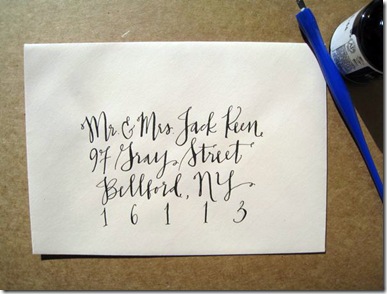 Mr. & Mrs. Jack Keen
97 Gray Street
Bellford, NY
16113